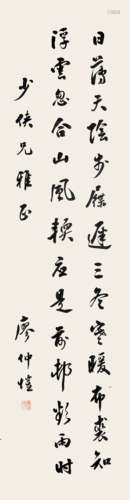 日薄天陰步屧遲三冬寒暖布裘知
浮雲忽合山風轉應是前邨欲雨時
少俠兄雅正
廖仲愷